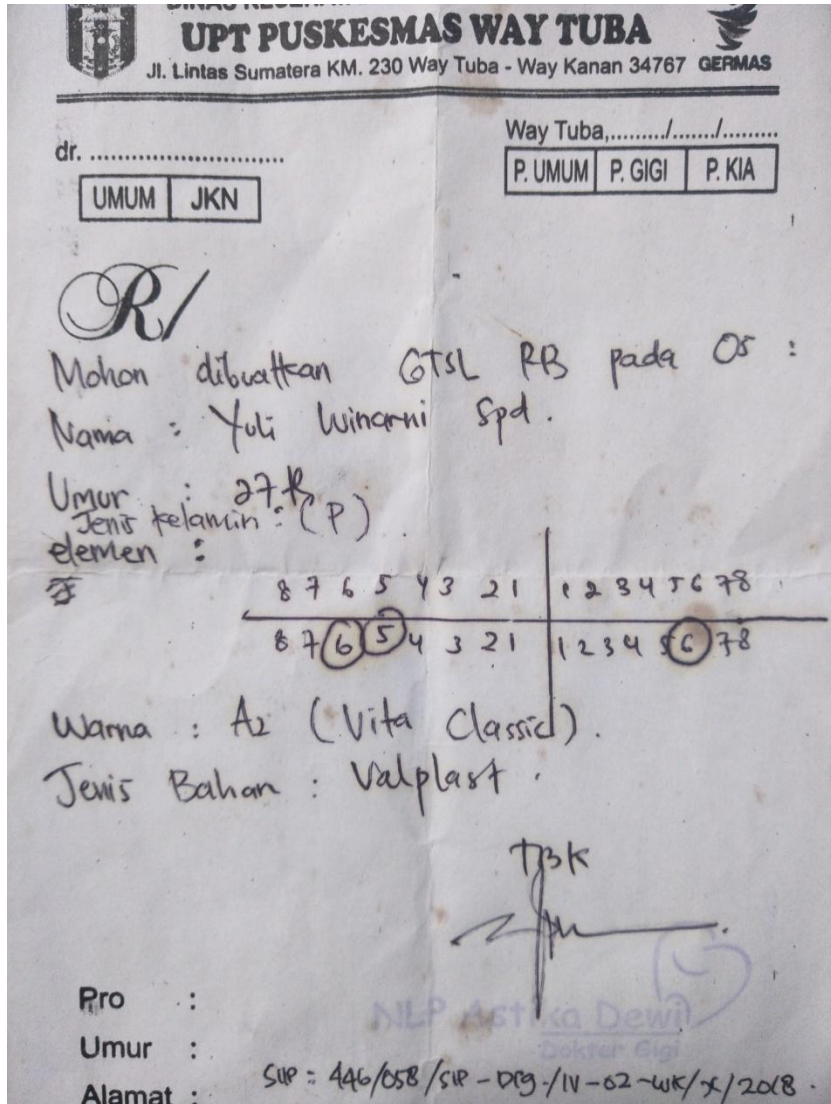 DINAS KESEHATAN
UPT PUSKESMAS WAY TUBA
Jl. Lintas Sumatera KM. 230 Way Tuba - Way Kanan 34767 GERMAS
Way Tuba,........./......./.........
dr. ............................
P. UMUM P. GIGI P. KIA
UMUM JKN
R/
Mohon dibuatkan GTSL RB pada OS :
Nama : Yuli Winarni Spd.
Umur : 27
Jenis kelamin : (P)
elemen :
8 7 6 5 4 3 2 1 1 2 3 4 5 6 7 8
8 7 6 5 4 3 2 1 1 2 3 4 5 6 7 8
Warna : A2 (Vita Classic).
Jenis Bahan : Valplast.
TBK
Pro :
NLP Astika Dewi
Umur :
Dokter Gigi
SIP : 446/058/SIP-Drg-/IV-02-WK/X/2018.
Alamat :